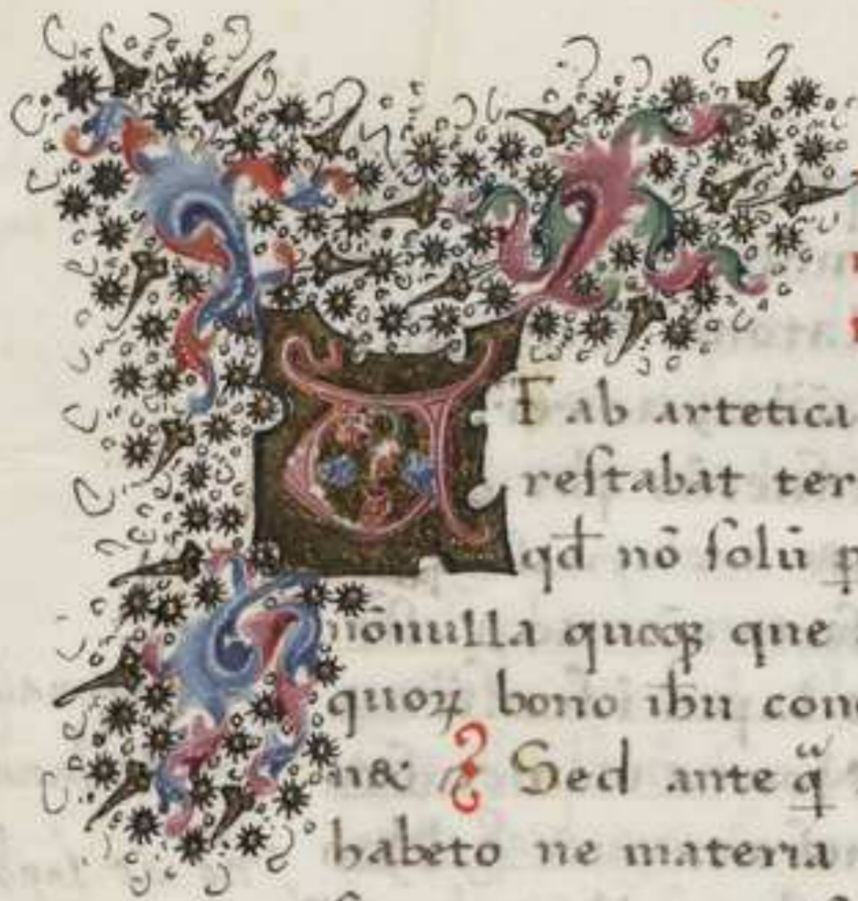 UT ab artetica
restabat ter
qd̄ nō solū p
nōnulla quoqꝫ que
quoꝝ bono ibu com
n&
Sed ante q̄
habeto ne materia